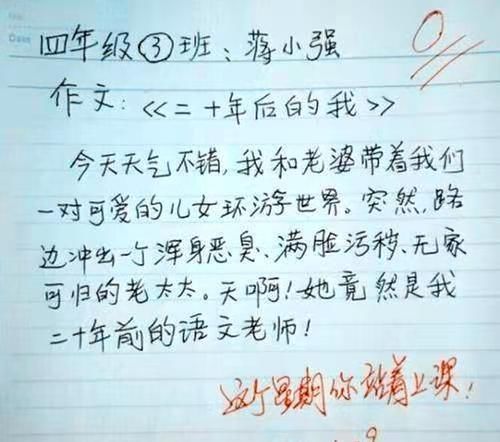 Date
四年级③班：蒋小强
0
作文：《二十年后的我》
今天天气不错，我和老婆带着我们
一对可爱的儿女环游世界。突然，路
边冲出一个浑身恶臭、满脸污秽、无家
可归的老太太。天啊！她竟然是我
二十年前的语文老师！
这个星期你站着上课！